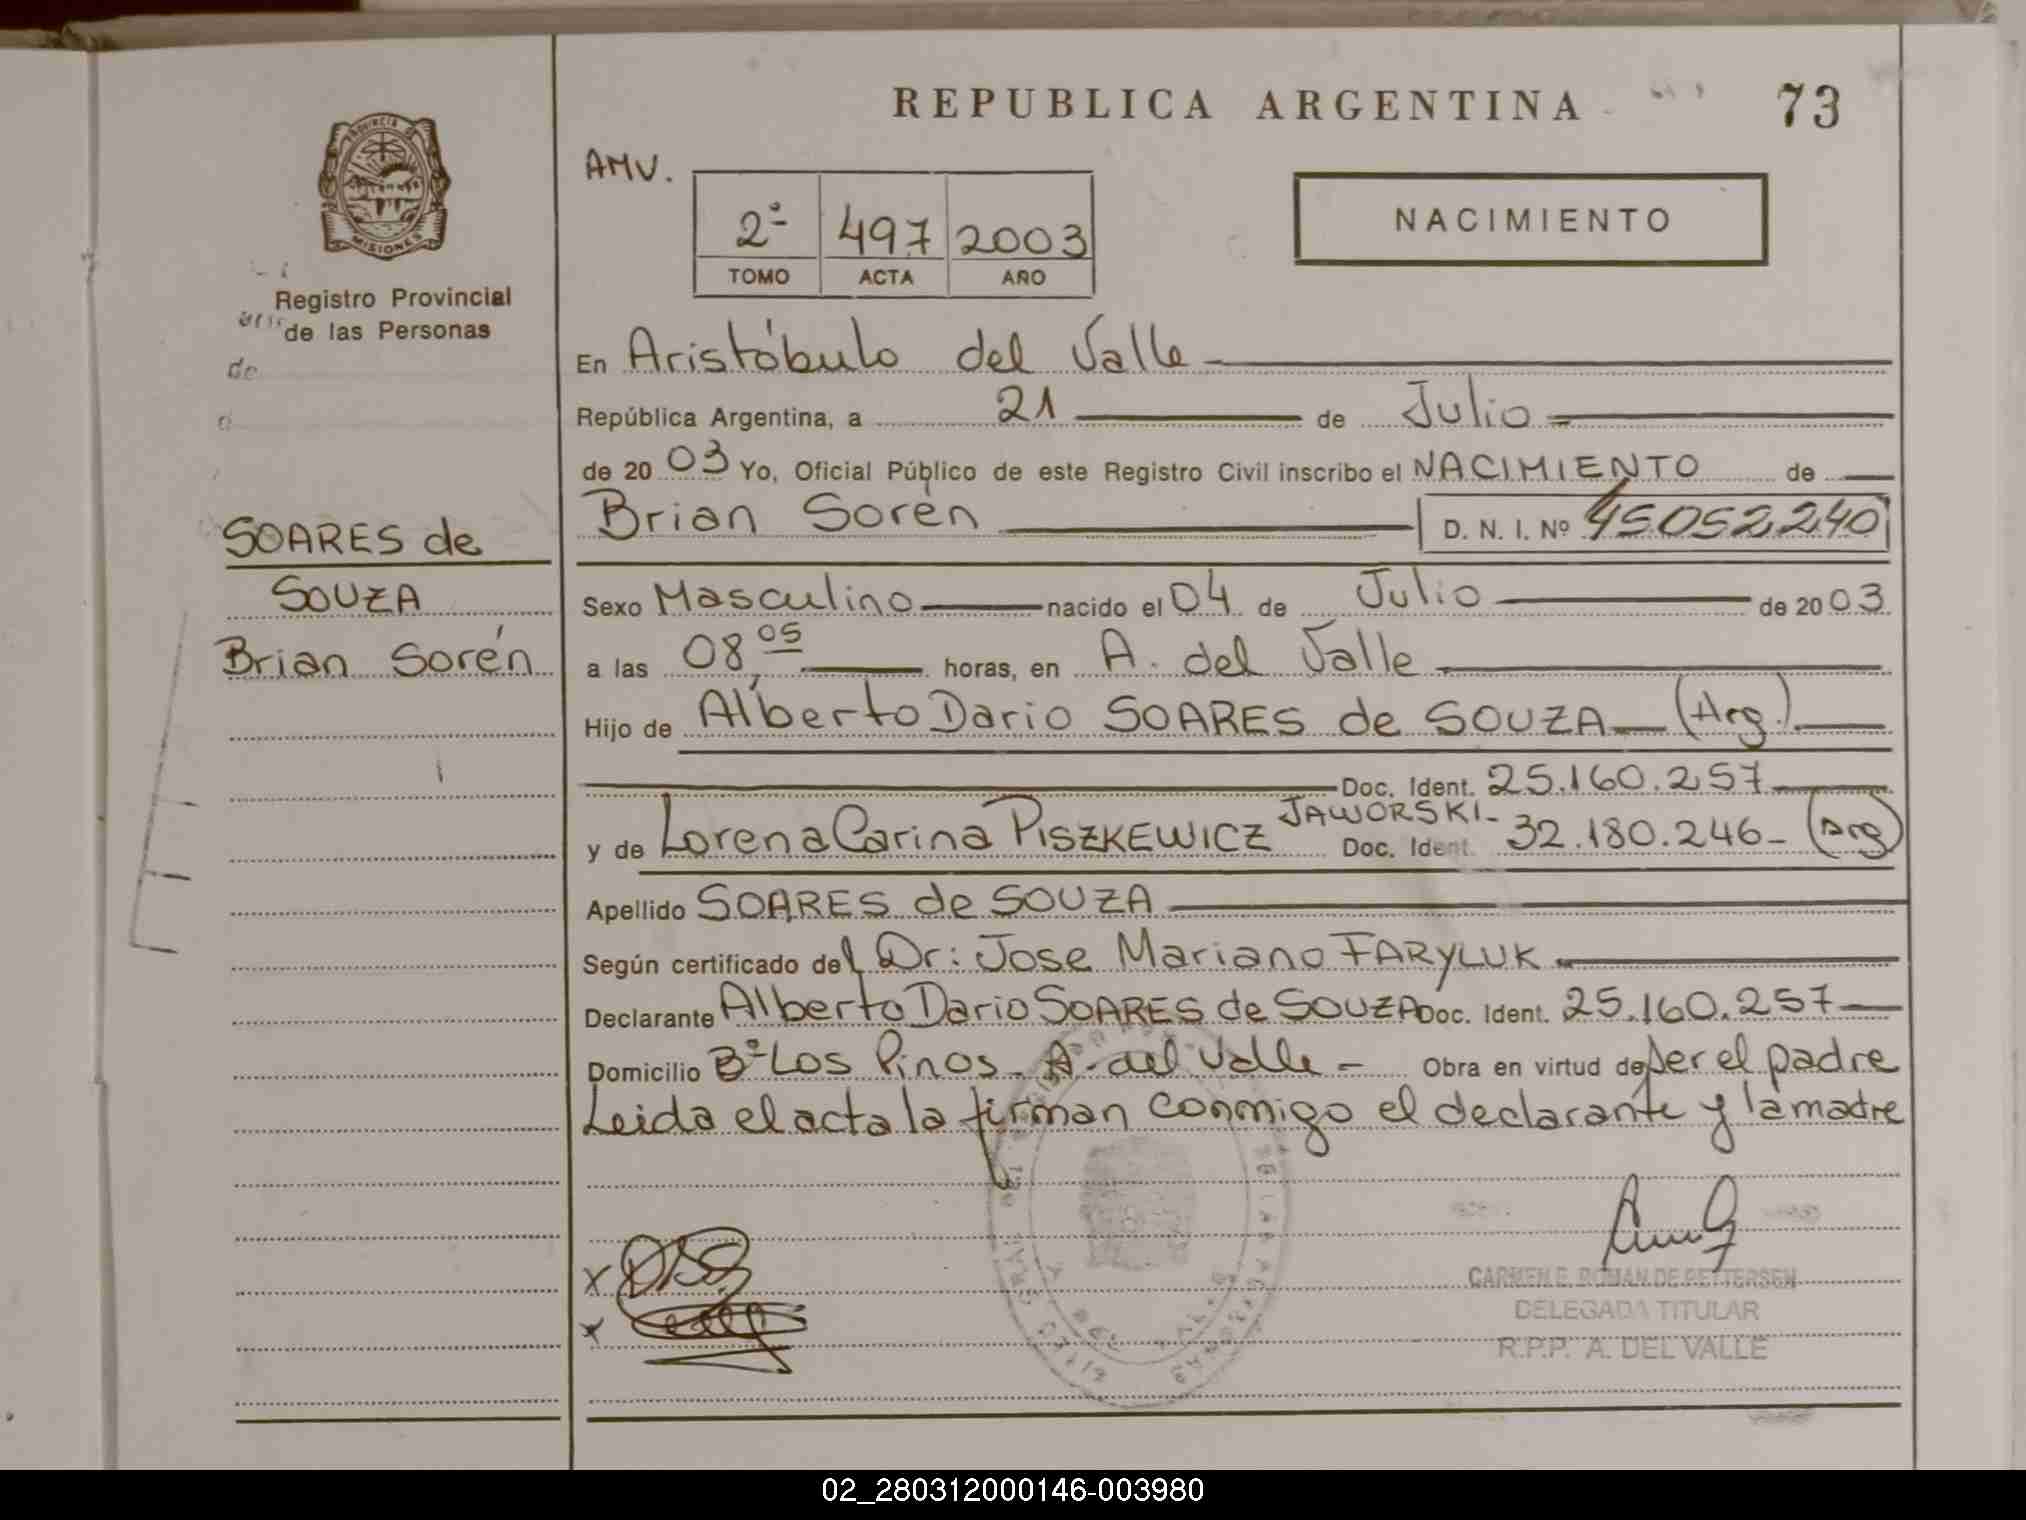 REPUBLICA ARGENTINA
73
PROVINCIA DE
MISIONES
Registro Provincial
de las Personas
AMV.
2º 497 2003
TOMO ACTA AÑO
NACIMIENTO
En Aristóbulo del Valle
República Argentina, a 21 de Julio
de 2003 Yo, Oficial Público de este Registro Civil inscribo el NACIMIENTO de
Brian Sorén D. N. I. Nº 45052240
SOARES de
SOUZA
Brian Sorén
Sexo Masculino nacido el 04 de Julio de 2003
a las 08,05 horas, en A. del Valle
Hijo de Alberto Dario SOARES de SOUZA (Arg.)
Doc. Ident. 25.160.257
JAWORSKI-
y de Lorena Carina PISZKEWICZ Doc. Ident. 32.180.246- (Arg)
Apellido SOARES de SOUZA
Según certificado del Dr: Jose Mariano FARYLUK
Declarante Alberto Dario SOARES de SOUZA Doc. Ident. 25.160.257
Domicilio Bº Los Pinos - A. del Valle - Obra en virtud de ser el padre
Leida el acta la firman conmigo el declarante y la madre
CARMEN E. ROMAN DE PETTERSEN
DELEGADA TITULAR
R.P.P. A. DEL VALLE
02_280312000146-003980